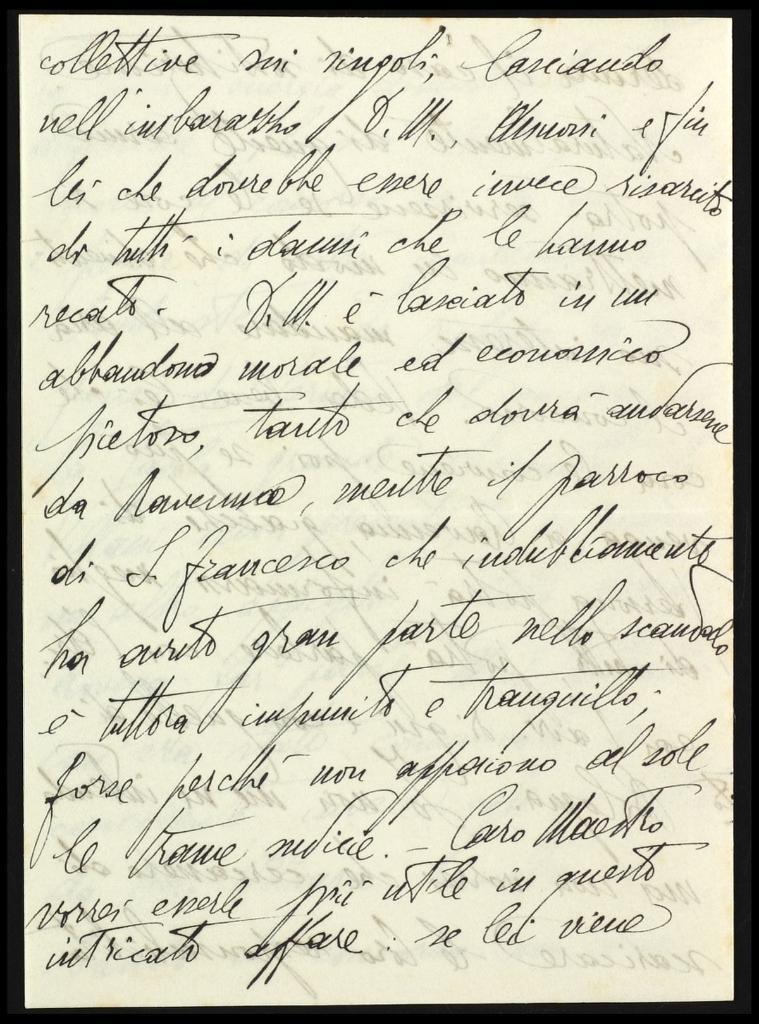 collettive sui singoli, lasciando
nell'imbarazzo D. M., e fin
lei che dovrebbe essere invece risarcito
di tutti i danni che le hanno
recato. D. M. è lasciato in un
abbandono morale ed economico
pietoso, tanto che dovrà andarsene
da Ravenna, mentre il parroco
di S. Francesco che indubbiamente
ha avuto gran parte nello scandalo
è tuttora impunito e tranquillo;
forse perché non appaiono al sole
le trame sudicie. - Caro Maestro
vorrei esserle più utile in questo
intricato affare: se lei viene